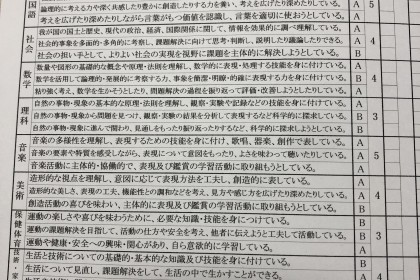 国語
論理的に考える力や深く共感したり豊かに創造したりする力を養い、考える
考えを広げたり深めたりしながら言葉がもつ価値を認識し、言葉を適切に使おうとしている。 A 5
社会
我が国の国土と歴史、現代の政治、経済、国際関係に関して、情報を効果的に調べ理解している。 A
社会的事象を多面的・多角的に考察し、課題解決に向けて思考・判断し、説明したり議論したりできる。 B 4
社会の担い手として、よりよい社会の実現を視野に課題を主体的に解決しようとしている。 A
数学
数量や図形の基礎的な概念や原理・法則を理解し、数学的に表現・処理する技能を身に付けている。 A
数学を活用して論理的・発展的に考察する力、事象を簡潔・明瞭・的確に表現する力を身に付けている。 B 4
粘り強く考え、数学を生かそうとしたり、問題解決の過程を振り返って評価・改善しようとしている。 A
理科
自然の事物・現象の基本的な原理・法則を理解し、観察・実験や記録などの技能を身に付けている。 A
自然の事物・現象から問題を見つけ、観察・実験の結果を分析して表現するなど科学的に探求している。 B 4
自然の事物・現象に進んで関わり、見通しをもったり振り返ったりするなど、科学的に探求しようとしている。 B
音楽
音楽の多様性を理解し、表現するための技能を身に付け、歌唱、器楽、創作で表している。 A
音楽の要素や特質を感受しながら、表現について意図をもったり、よさを味わって聴いたりしている。 A 5
音楽活動に主体的・協働的で、表現及び鑑賞の学習活動に取り組もうとしている。 A
美術
造形的な視点を理解し、意図に応じて表現方法を工夫し、創造的に表している。 A
造形的な美しさ、表現の工夫、機能性との調和などを考え、見方や感じ方を広げたり深めたりしている。 A 4
創造活動の喜びを味わい、主体的に表現及び鑑賞の学習活動に取り組もうとしている。 B
保健体育
運動の楽しさや喜びを味わうために、必要な知識・技能を身につけている。 B
運動の課題解決を目指して、活動の仕方や安全を考え、他者に伝えようと工夫して活動している。 B 3
運動や健康・安全への興味・関心があり、自ら意欲的に学習している。 B
生活と技術についての基礎的・基本的な知識及び技能を身に付けている。 A
生活について見直し、課題解決をして、生活の中で生かすことができる。 B 4